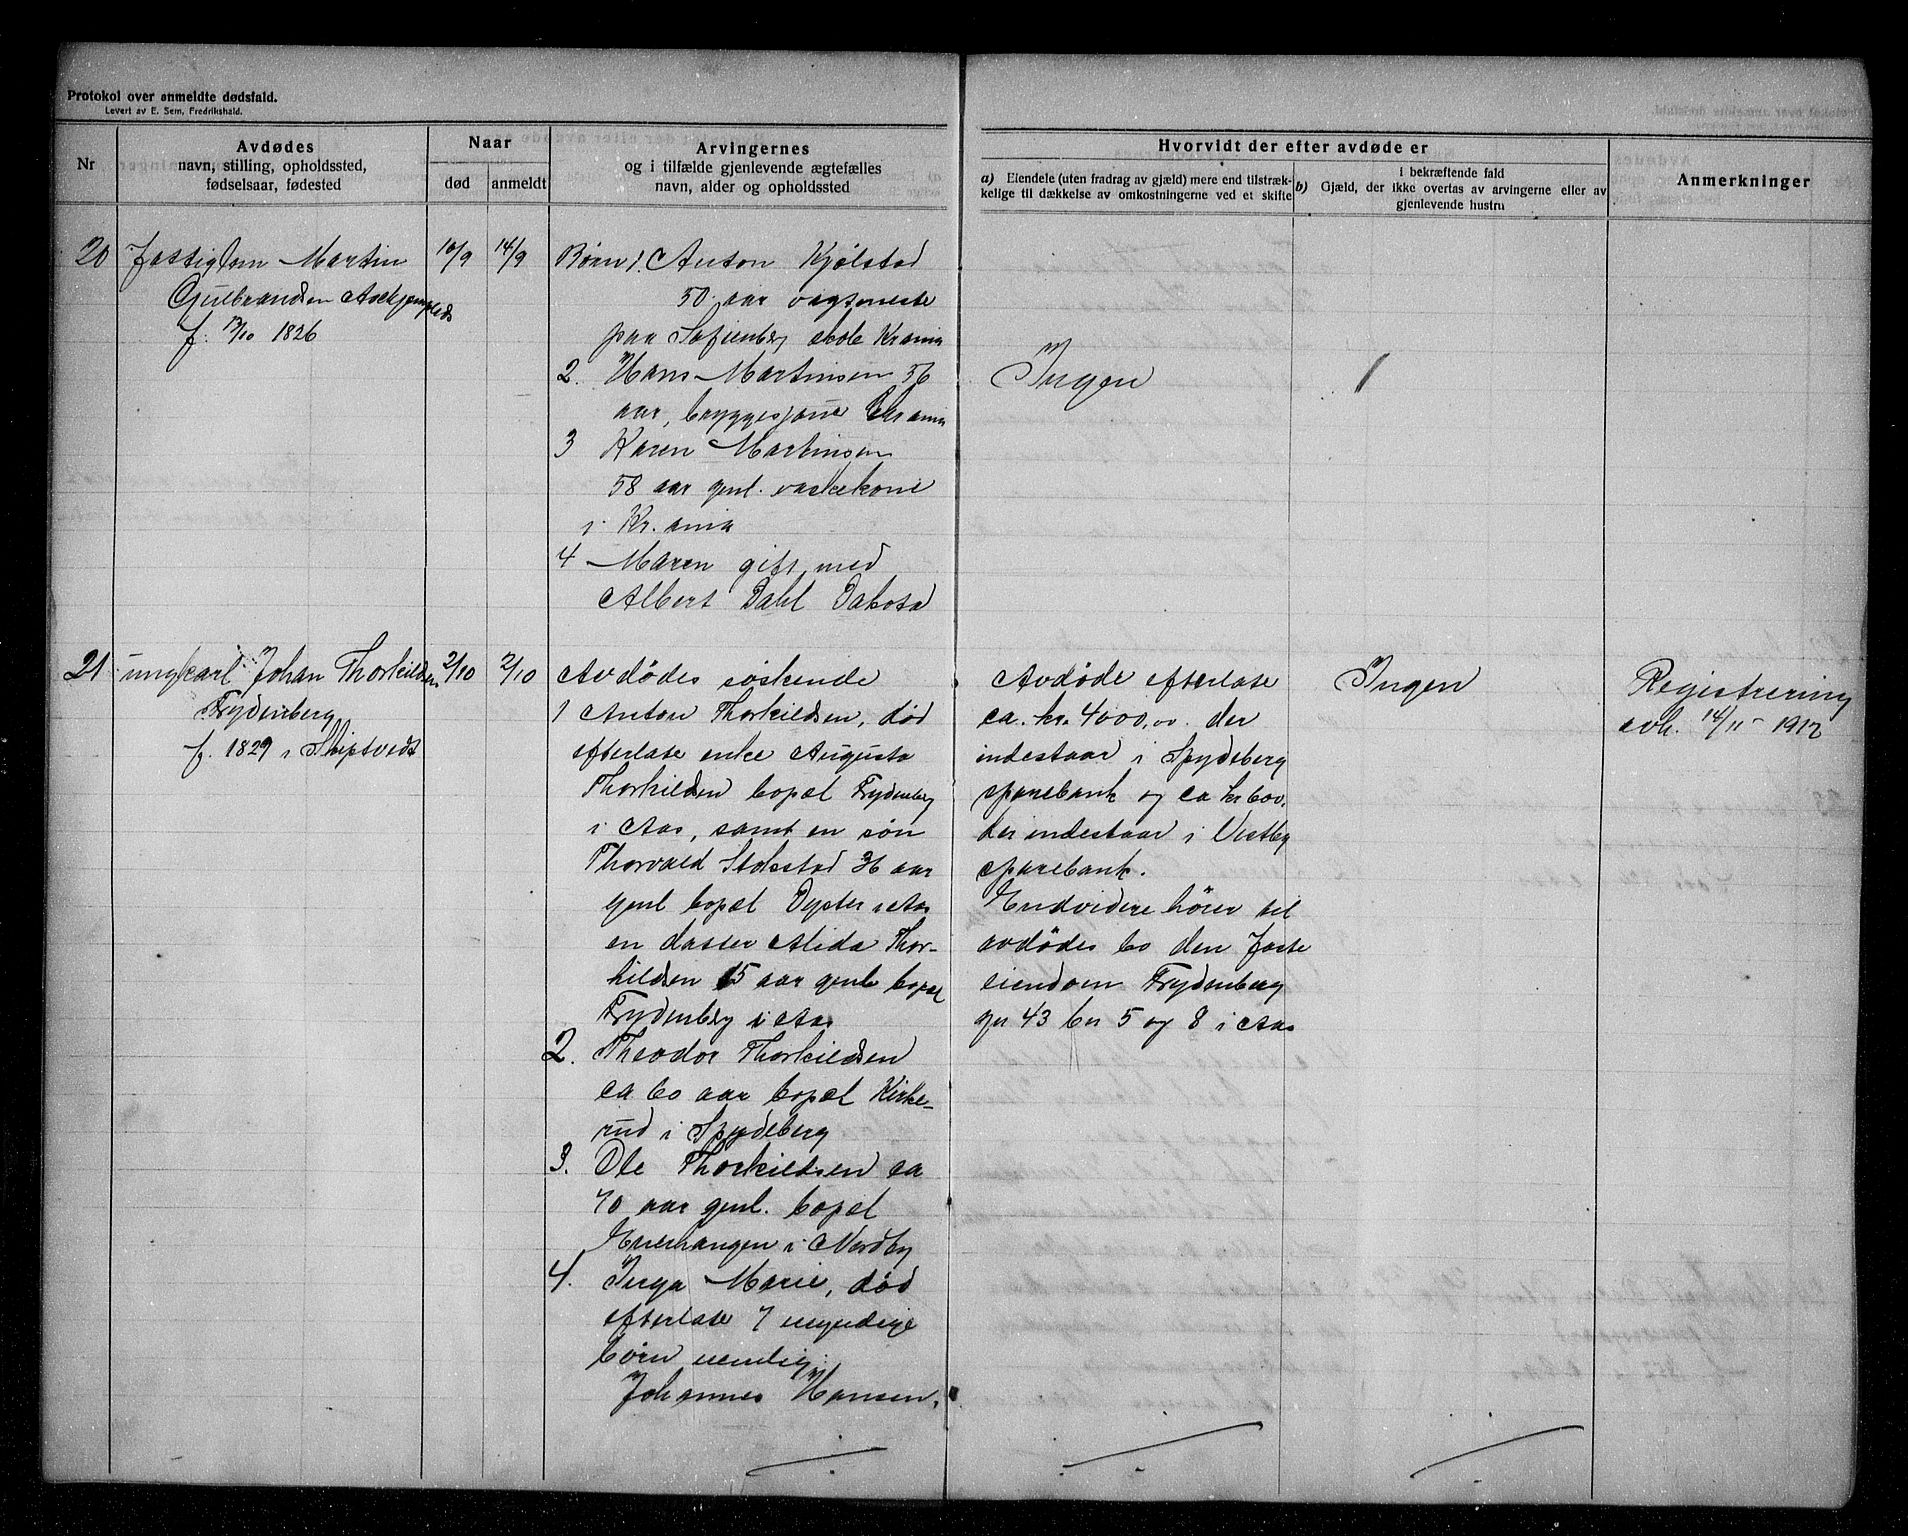 Protokol over anmeldte dødsfald.
Levert av E. Sem, Fredrikshald.
Nr
Avdødes
navn, stilling, opholdssted,
fødselsaar, fødested
Naar
død
anmeldt
Arvingernes
og i tilfælde gjenlevende ægtefælles
navn, alder og opholdssted
Hvorvidt der efter avdøde er
a) Eiendele (uten fradrag av gjæld) mere end tilstræk-
kelige til dækkelse av omkostningerne ved et skifte
i bekræftende fald
b) Gjæld, der ikke overtas av arvingerne eller av
gjenlevende hustru
Anmerkninger
20
Fattiglem Martin
Gulbrandsen
f. 13/10 1826
10/9
14/9
Børn 1. Anton Kjølstad
50 aar vagtmester
paa Sofienberg skole Kr.ania
2. Hans Martinsen 56
aar, bryggesjauer Chr.ania
3 Karen Martinsen
58 aar genl. vaskekone
i Kr.ania
4 Maren gift med
Albert Dahl Dakota
Ingen
/
21
ungkarl Johan Thorkildsen
Frydenberg
f. 1829 i Skiptvedt
2/10
2/10
Avdødes søskende
1 Anton Thorkildsen, død
efterlate enke Augusta
Thorkildsen bopæl Frydenberg
i Aas, samt en søn
Thorvald Stokstad 36 aar
genl bopæl Dyster i Aas
en datter Alida Thor-
kildsen 15 aar genl bopæl
Frydenberg i Aas
2. Theodor Thorkildsen
ca 60 aar bopæl Kirke-
rud i Spydeberg
3. Ole Thorkildsen ca
70 aar genl. bopæl
i Nordby
4. Inga Marie, død
efterlate 7 umyndige
børn nemlig:
Johannes Hansen,
Avdøde efterlate
ca. kr. 4000,00 der
indestaar i Spydeberg
sparebank og ca kr 600,
der indestaar i Vestby
sparebank.
Endvidere hører til
avdødes bo den faste
eiendom Frydenberg
gr 43 br 5 og 8 i Aas
Ingen
Registrering
avh. 14/11 - 1912